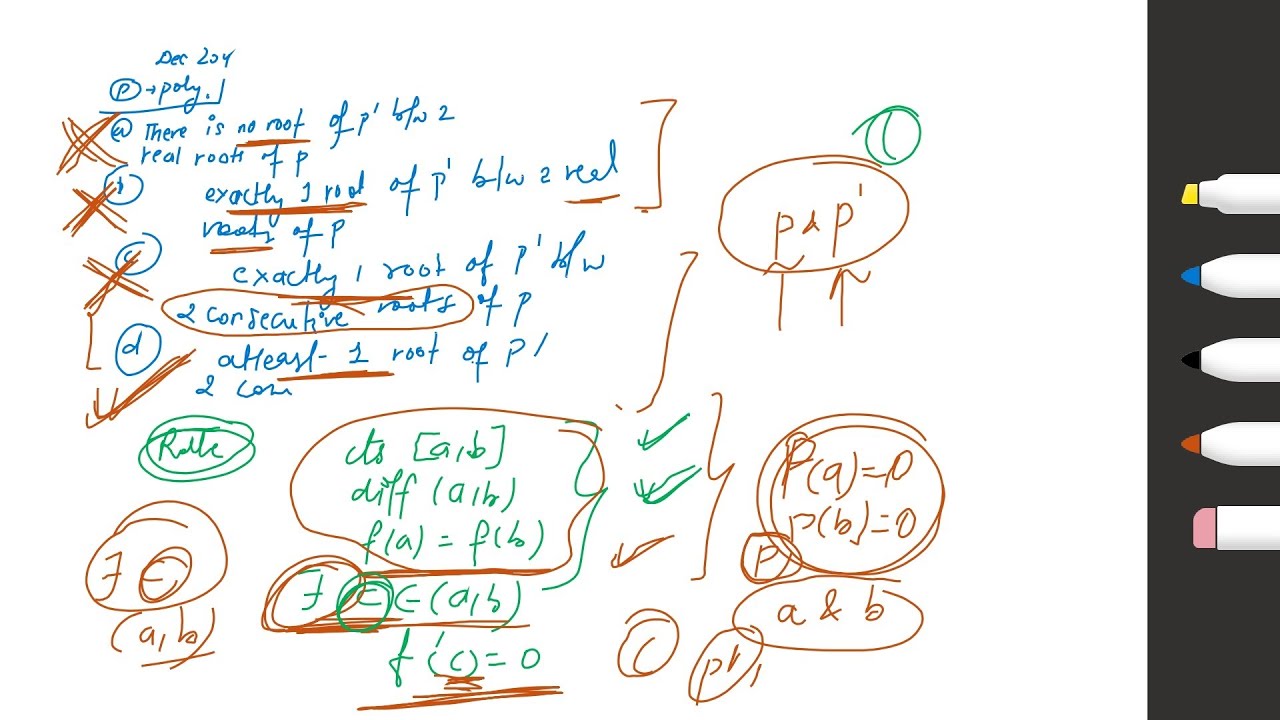 Dec 204
P → poly.
a There is no root of p' b/w 2
real roots of p
b exactly 1 root of p' b/w 2 real
roots of p
c exactly 1 root of p' b/w
2 consecutive roots of p
d atleast 1 root of p'
2 con
p & p'
Rolle
cts [a,b]
diff (a,b)
f(a) = f(b)
∃ c ∈ (a,b)
f'(c) = 0
P(a) = 0
p(b) = 0
P
a & b
∃ c
(a,b)
C
p'